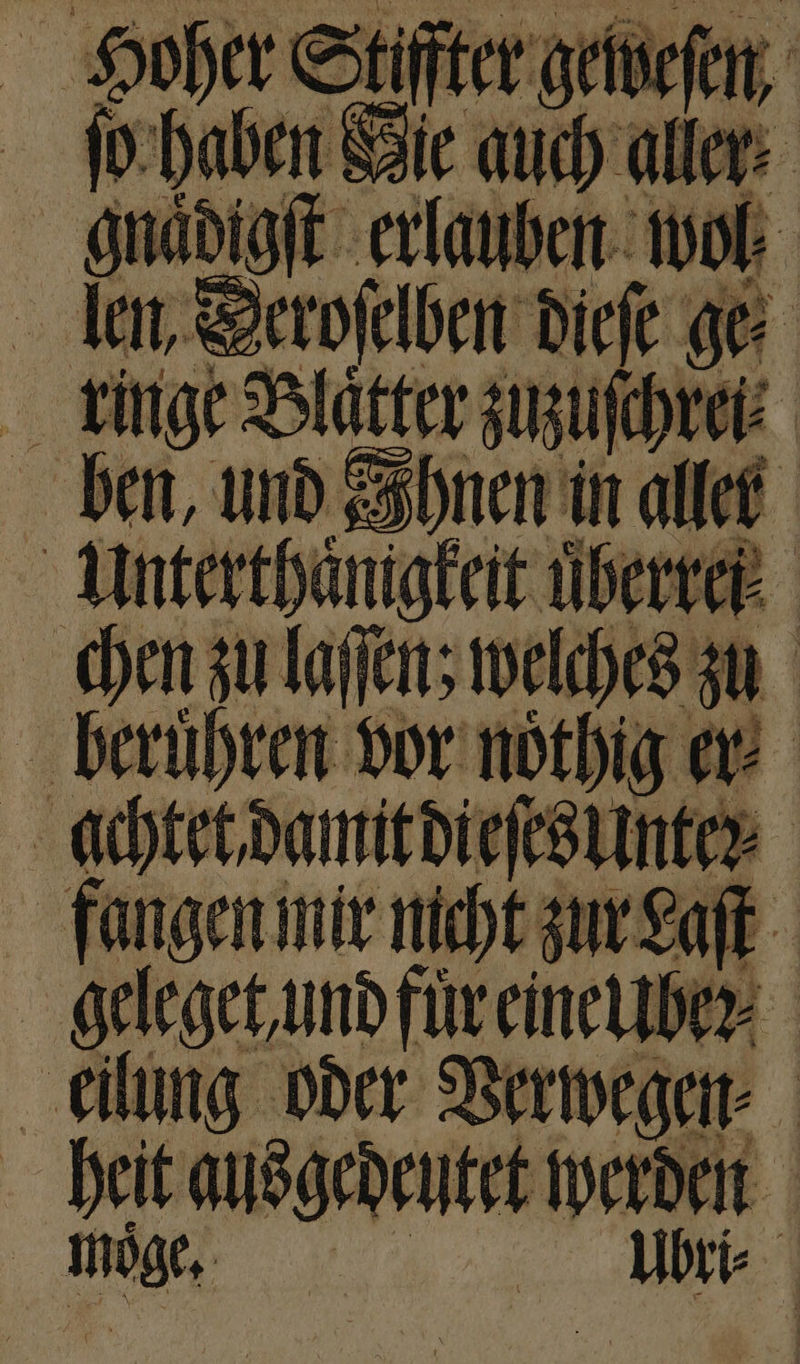 Hoher Stiffter geweſen,
ſo haben Sie auch aller⸗
gnaͤdigſt erlauben wol⸗
len, Deroſelben dieſe ge⸗
ringe Blaͤtter zuzuſchrei⸗
ben, und Ihnen in aller
Unterthaͤnigkeit uͤberrei⸗
chen zu laſſen; welches zu
beruͤhren vor noͤthig er⸗
achtet, damit dieſes Unteꝛ⸗
fangen mir nicht zur Laſt
geleget, und fuͤr eine Ubeꝛ⸗
eilung oder Verwegen⸗
heit ausgedeutet werden
moͤge. Ubri⸗